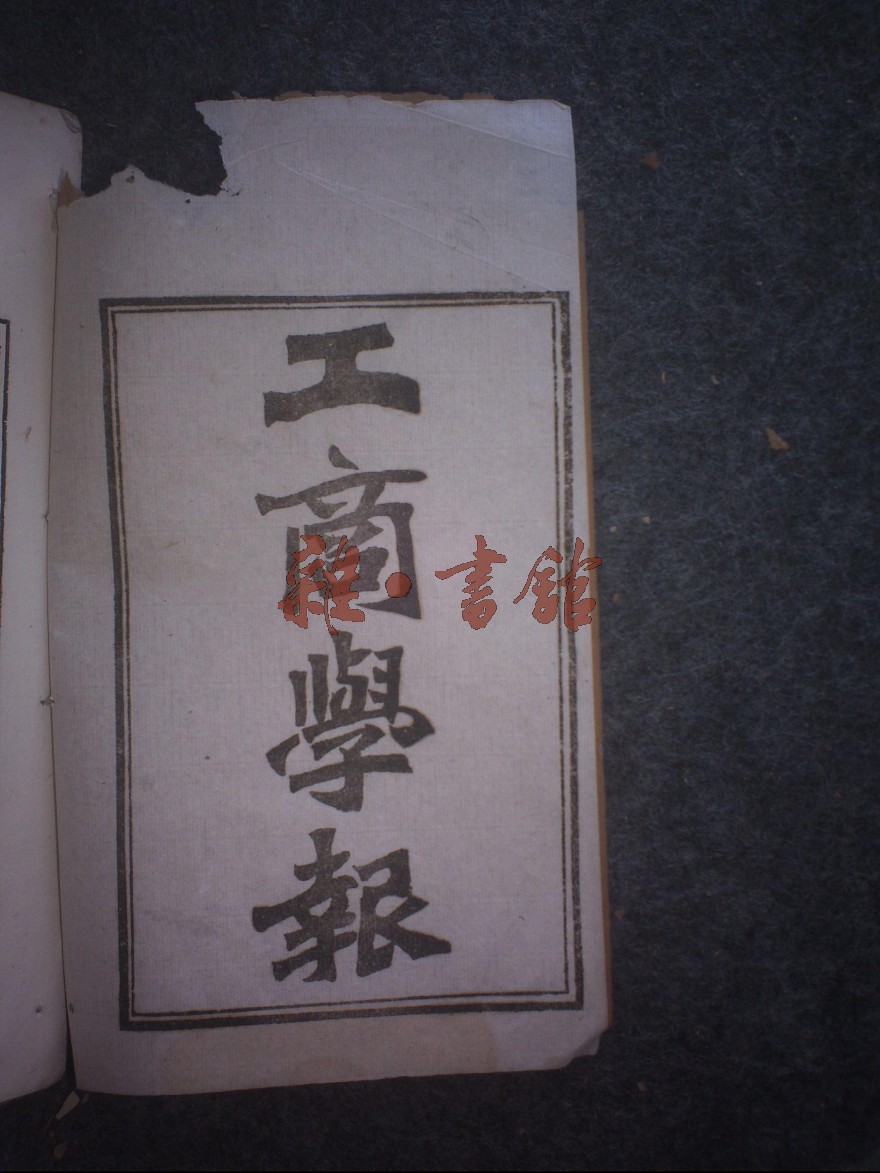 工商學報
雜·書館